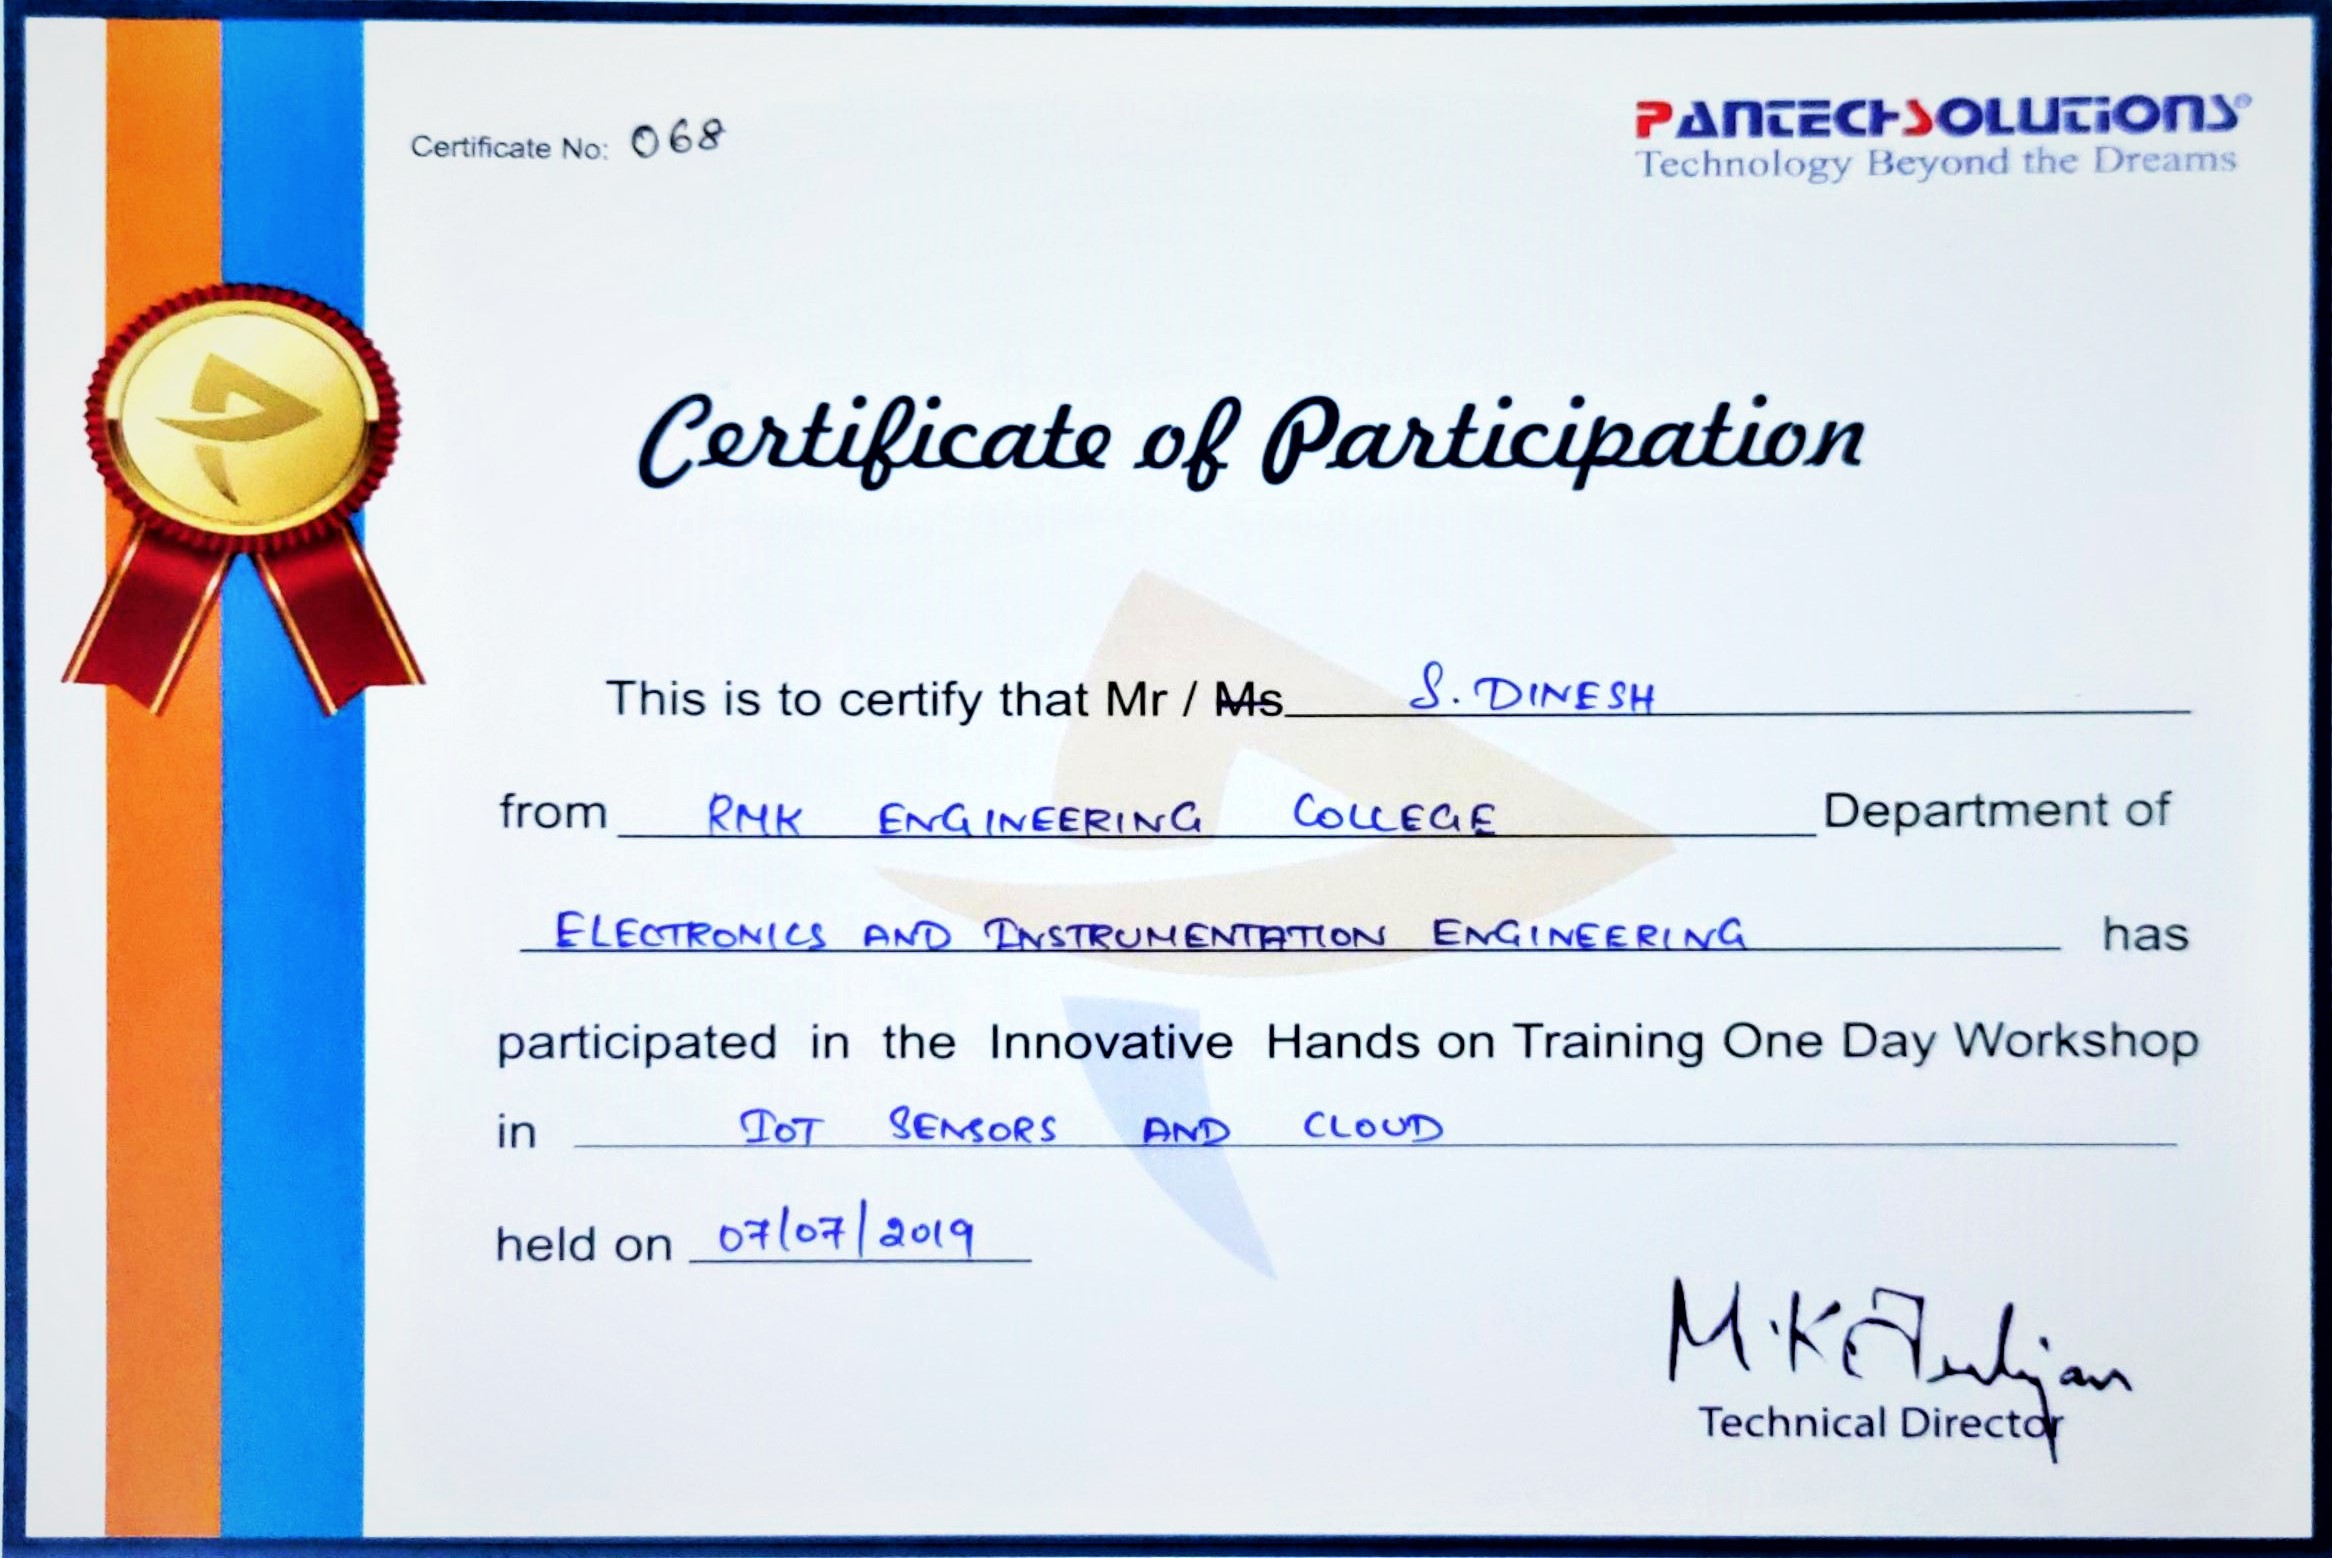 Certificate No: 068
PANTECHSOLUTIONS®
Technology Beyond the Dreams
Certificate of Participation
This is to certify that Mr / Ms S. DINESH
from RMK ENGINEERING COLLEGE Department of
ELECTRONICS AND INSTRUMENTATION ENGINEERING has
participated in the Innovative Hands on Training One Day Workshop
in IOT SENSORS AND CLOUD
held on 07/07/2019
Technical Director